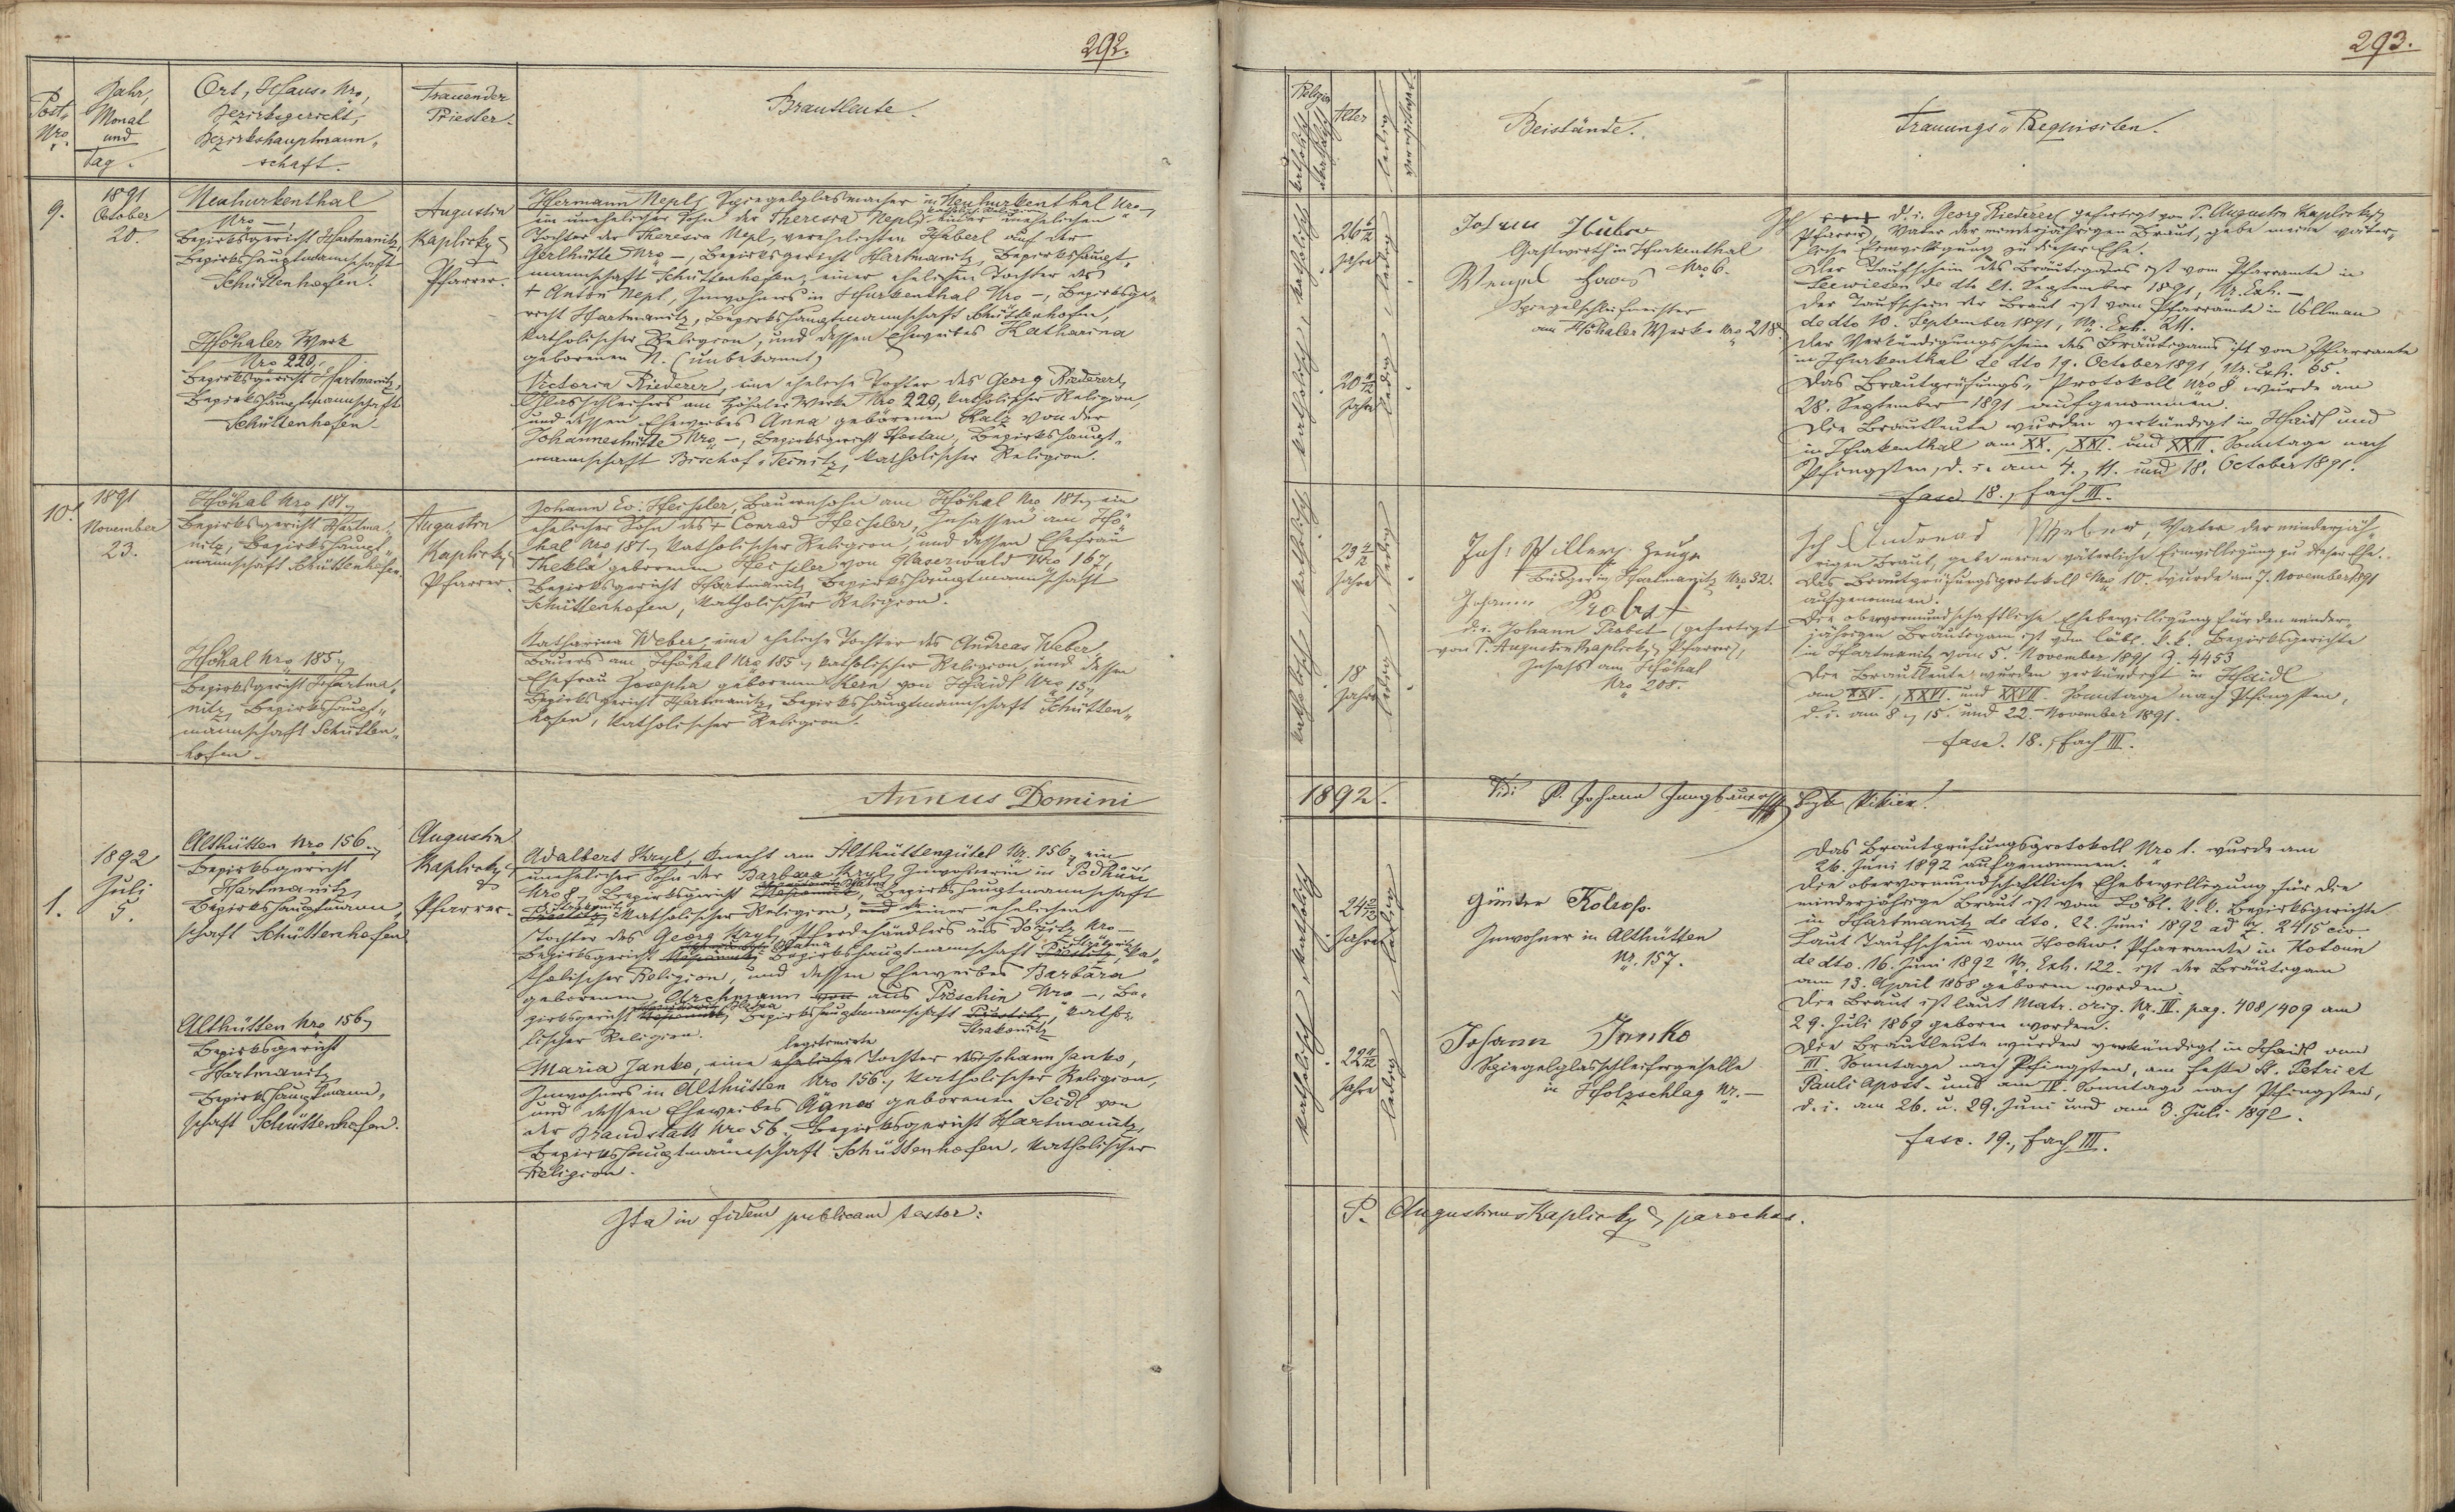 292.
Post-
Nro.
Jahr,
Monat
und
Tag.
Ort, Haus-Nro,
Bezirksgericht,
Bezirkshauptmann-
schaft.
Trauender
Priester.
Brautleute.
9.
1891
October
20.
Neuhurkenthal
Nro —,
Bezirksgericht Hartmanitz
Bezirkshauptmannschaft
Schüttenhofen.
Höhaler Werk
Nro 220,
Bezirksgericht Hartmanitz,
Bezirkshauptmannschaft
Schüttenhofen
Augustin
Kaplicky
Pfarrer.
Hermann Nepl, Spiegelglasmacher in Neuhurkenthal Nro —,
ein unehelicher Sohn der Theresia Nepl, katholischer Religion, einer unehelichen
Tochter der Theresia Nepl, verehelichten Haberl auf der
Gerlhütte Nro —, Bezirksgericht Hartmanitz, Bezirkshaupt-
mannschaft Schüttenhofen, einer ehelichen Tochter des
+ Anton Nepl, Inwohners in Hurkenthal Nro —, Bezirksge-
richt Hartmanitz, Bezirkshauptmannschaft Schüttenhofen,
katholischer Religion, und dessen Eheweibes Katharina
geborenen N. (unbekannt)
Victoria Riederer, eine eheliche Tochter des Georg Riederer,
Glasschleifers am Höhaler Werke Nro 220, katholischer Religion,
und dessen Eheweibes Anna geborenen Kalz von der
Johanneshütte Nro —, Bezirksgericht Hostau, Bezirkshaupt-
mannschaft Bischof-Teinitz, katholischer Religion.
10.
1891
November
23.
Höhal Nro 187,
Bezirksgericht Hartma-
nitz, Bezirkshaupt-
mannschaft Schüttenhofen.
Höhal Nro 185,
Bezirksgericht Hartma-
nitz, Bezirkshaupt-
mannschaft Schütten-
hofen.
Augustin
Kaplicky
Pfarrer.
Johann Ev. Hechsler, Bauernsohn am Höhal Nro 187, ein
ehelicher Sohn des + Conrad Hechsler, Insassen am Hö-
hal Nro 187, katholischer Religion, und dessen Ehefrau
Thekla geborenen Hechsler von Glaserwald Nro 167,
Bezirksgericht Hartmanitz Bezirkshauptmannschaft
Schüttenhofen, katholischer Religion.
Katharina Weber, eine eheliche Tochter des Andreas Weber,
Bauers am Höhal Nro 185, katholischer Religion, und dessen
Ehefrau Josepha geborenen Kern von Haidl Nro 13,
Bezirksgericht Hartmanitz, Bezirkshauptmannschaft Schütten-
hofen, katholischer Religion.
Annus Domini
1.
1892
Juli
5.
Althütten Nro 156.,
Bezirksgericht
Hartmanitz
Bezirkshauptmann-
schaft Schüttenhofen
Althütten Nro 156,
Bezirksgericht
Hartmanitz
Bezirkshauptmann-
schaft Schüttenhofen.
Augustin
Kaplicky
Pfarrer.
Adalbert Kryl, Knecht am Althüttengütel Nr. 156, ein
unehelicher Sohn der Barbara Kryl, Inwohnerin in
Nro 8, Bezirksgericht Bezirkshauptmannschaft
Strakonitz katholischer Religion, und einer ehelichen
Tochter des Georg Kryl, Pferdehändlers aus Nro —
Bezirksgericht Bezirkshauptmannschaft Strakonitz, ka-
tholischer Religion, und dessen Eheweibes Barbara
geborenen von aus Nro —, Be-
zirksgericht Bezirkshauptmannschaft Strakonitz, katho-
lischer Religion.
Maria Janko, eine legitimirte eheliche Tochter des Johann Janko,
Inwohners in Althütten Nro 156, katholischer Religion,
und dessen Eheweibes Agnes geborenen Seidl von
der Brandstatt Nro 56, Bezirksgericht Hartmanitz,
Bezirkshauptmannschaft Schüttenhofen, katholischer
Religion.
Ita in fidem publicam testor:
293.
Religion
katholisch
Alter
ledig
verwitwet
Beistände.
Trauungs-Requisiten.
katholisch
26 Jahre
ledig
katholisch
20 Jahre
ledig
Johann Huber
Gastwirth in Hurkenthal
Nro 6.
Wenzel
Spiegelschleifmeister
am Höhaler Werke Nro 218.
Ich d. i. Georg Riederer (gefertigt von P. Augustin Kaplicky,
Pfarrer) Vater der minderjährigen Braut, gebe meine väter-
liche Einwilligung zu dieser Ehe.
Der Taufschein des Bräutigams ist vom Pfarramte in
Seewiesen de dto 21. September 1891, Nr. Exh. —
Der Taufschein der Braut ist vom Pfarramte in Vollman
de dto 10. September 1891, Nr. Exh. 211.
Der Verkündigungsschein des Bräutigams ist vom Pfarramte
in Hurkenthal de dto 19. October 1891, Nr. Exh. 65.
Das Brautprüfungs-Protokoll Nro 8 wurde am
28. September 1891 aufgenommen.
Die Brautleute wurden verkündigt in Haidl und
in Hurkenthal am XX., XXI. und XXII. Sonntage nach
Pfingsten, d. i. am 4., 11. und 18. October 1891.
fasc. 18., Fach III.
katholisch
23 Jahre
ledig
katholisch
18 Jahre
ledig
Joh: Spillery Zeuge
Bürger in Hartmanitz Nro 32.
Johann Probst
d. i. Johann Probst (gefertigt
von P. Augustin Kaplicky, Pfarrer),
Insass am Höhal
Nro 200.
Ich Andreas Weber, Vater der minderjäh-
rigen Braut, gebe meine väterliche Einwilligung zu dieser Ehe.
Das Brautprüfungsprotokoll Nro 10. wurde am 7. November 1891
aufgenommen.
Die obervormundschaftliche Ehebewilligung für den minder-
jährigen Bräutigam ist vom löbl. k. k. Bezirksgerichte
in Hartmanitz vom 5. November 1891 Z. 4453
Die Brautleute wurden verkündigt in Haidl
am XXV., XXVI. und XXVII. Sonntage nach Pfingsten,
d. i. am 8., 15. und 22. November 1891.
fasc. 18., Fach III.
1892.
Vidi P. Johann Jungbauer Bez. Vikär.
katholisch
24 Jahre
ledig
katholisch
22 Jahre
ledig
Günter
Inwohner in Althütten
Nr. 157.
Johann Janko
Spiegelglasschleifergeselle
in Holzschlag Nr. —
Das Brautprüfungsprotokoll Nro 1. wurde am
26. Juni 1892 aufgenommen.
Die obervormundschaftliche Ehebewilligung für die
minderjährige Braut ist vom Löbl. k. k. Bezirksgerichte
in Hartmanitz de dto. 22. Juni 1892 ad Z. 2415 civ.
Laut Taufschein vom Hochw. Pfarramte in
de dto. 16. Juni 1892 Nr. Exh. 122. ist der Bräutigam
am 13. April 1868 geboren worden.
Die Braut ist laut Matr. orig. Nr. III. pag. 408/409 am
29. Juli 1869 geboren worden.
Die Brautleute wurden verkündigt in Haidl am
III. Sonntage nach Pfingsten, am Feste St. Petri et
Pauli Apost. und am IV. Sonntage nach Pfingsten,
d. i. am 26. u. 29. Juni und am 3. Juli 1892.
fasc. 19., Fach III.
P. Augustinus Kaplicky, parochus.